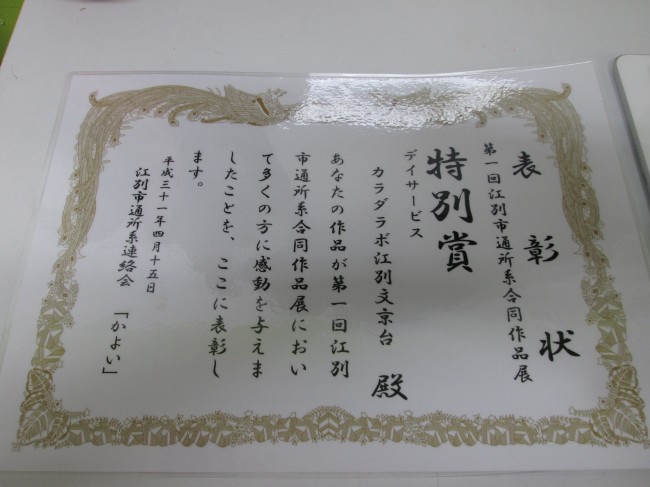 表彰状
第一回江別市通所系合同作品展
特別賞
デイサービス
カラダラボ江別文京台 殿
あなたの作品が第一回江別
市通所系合同作品展におい
て多くの方に感動を与えま
したことを、ここに表彰し
ます。
平成三十一年四月十五日
江別市通所系連絡会 「かよい」